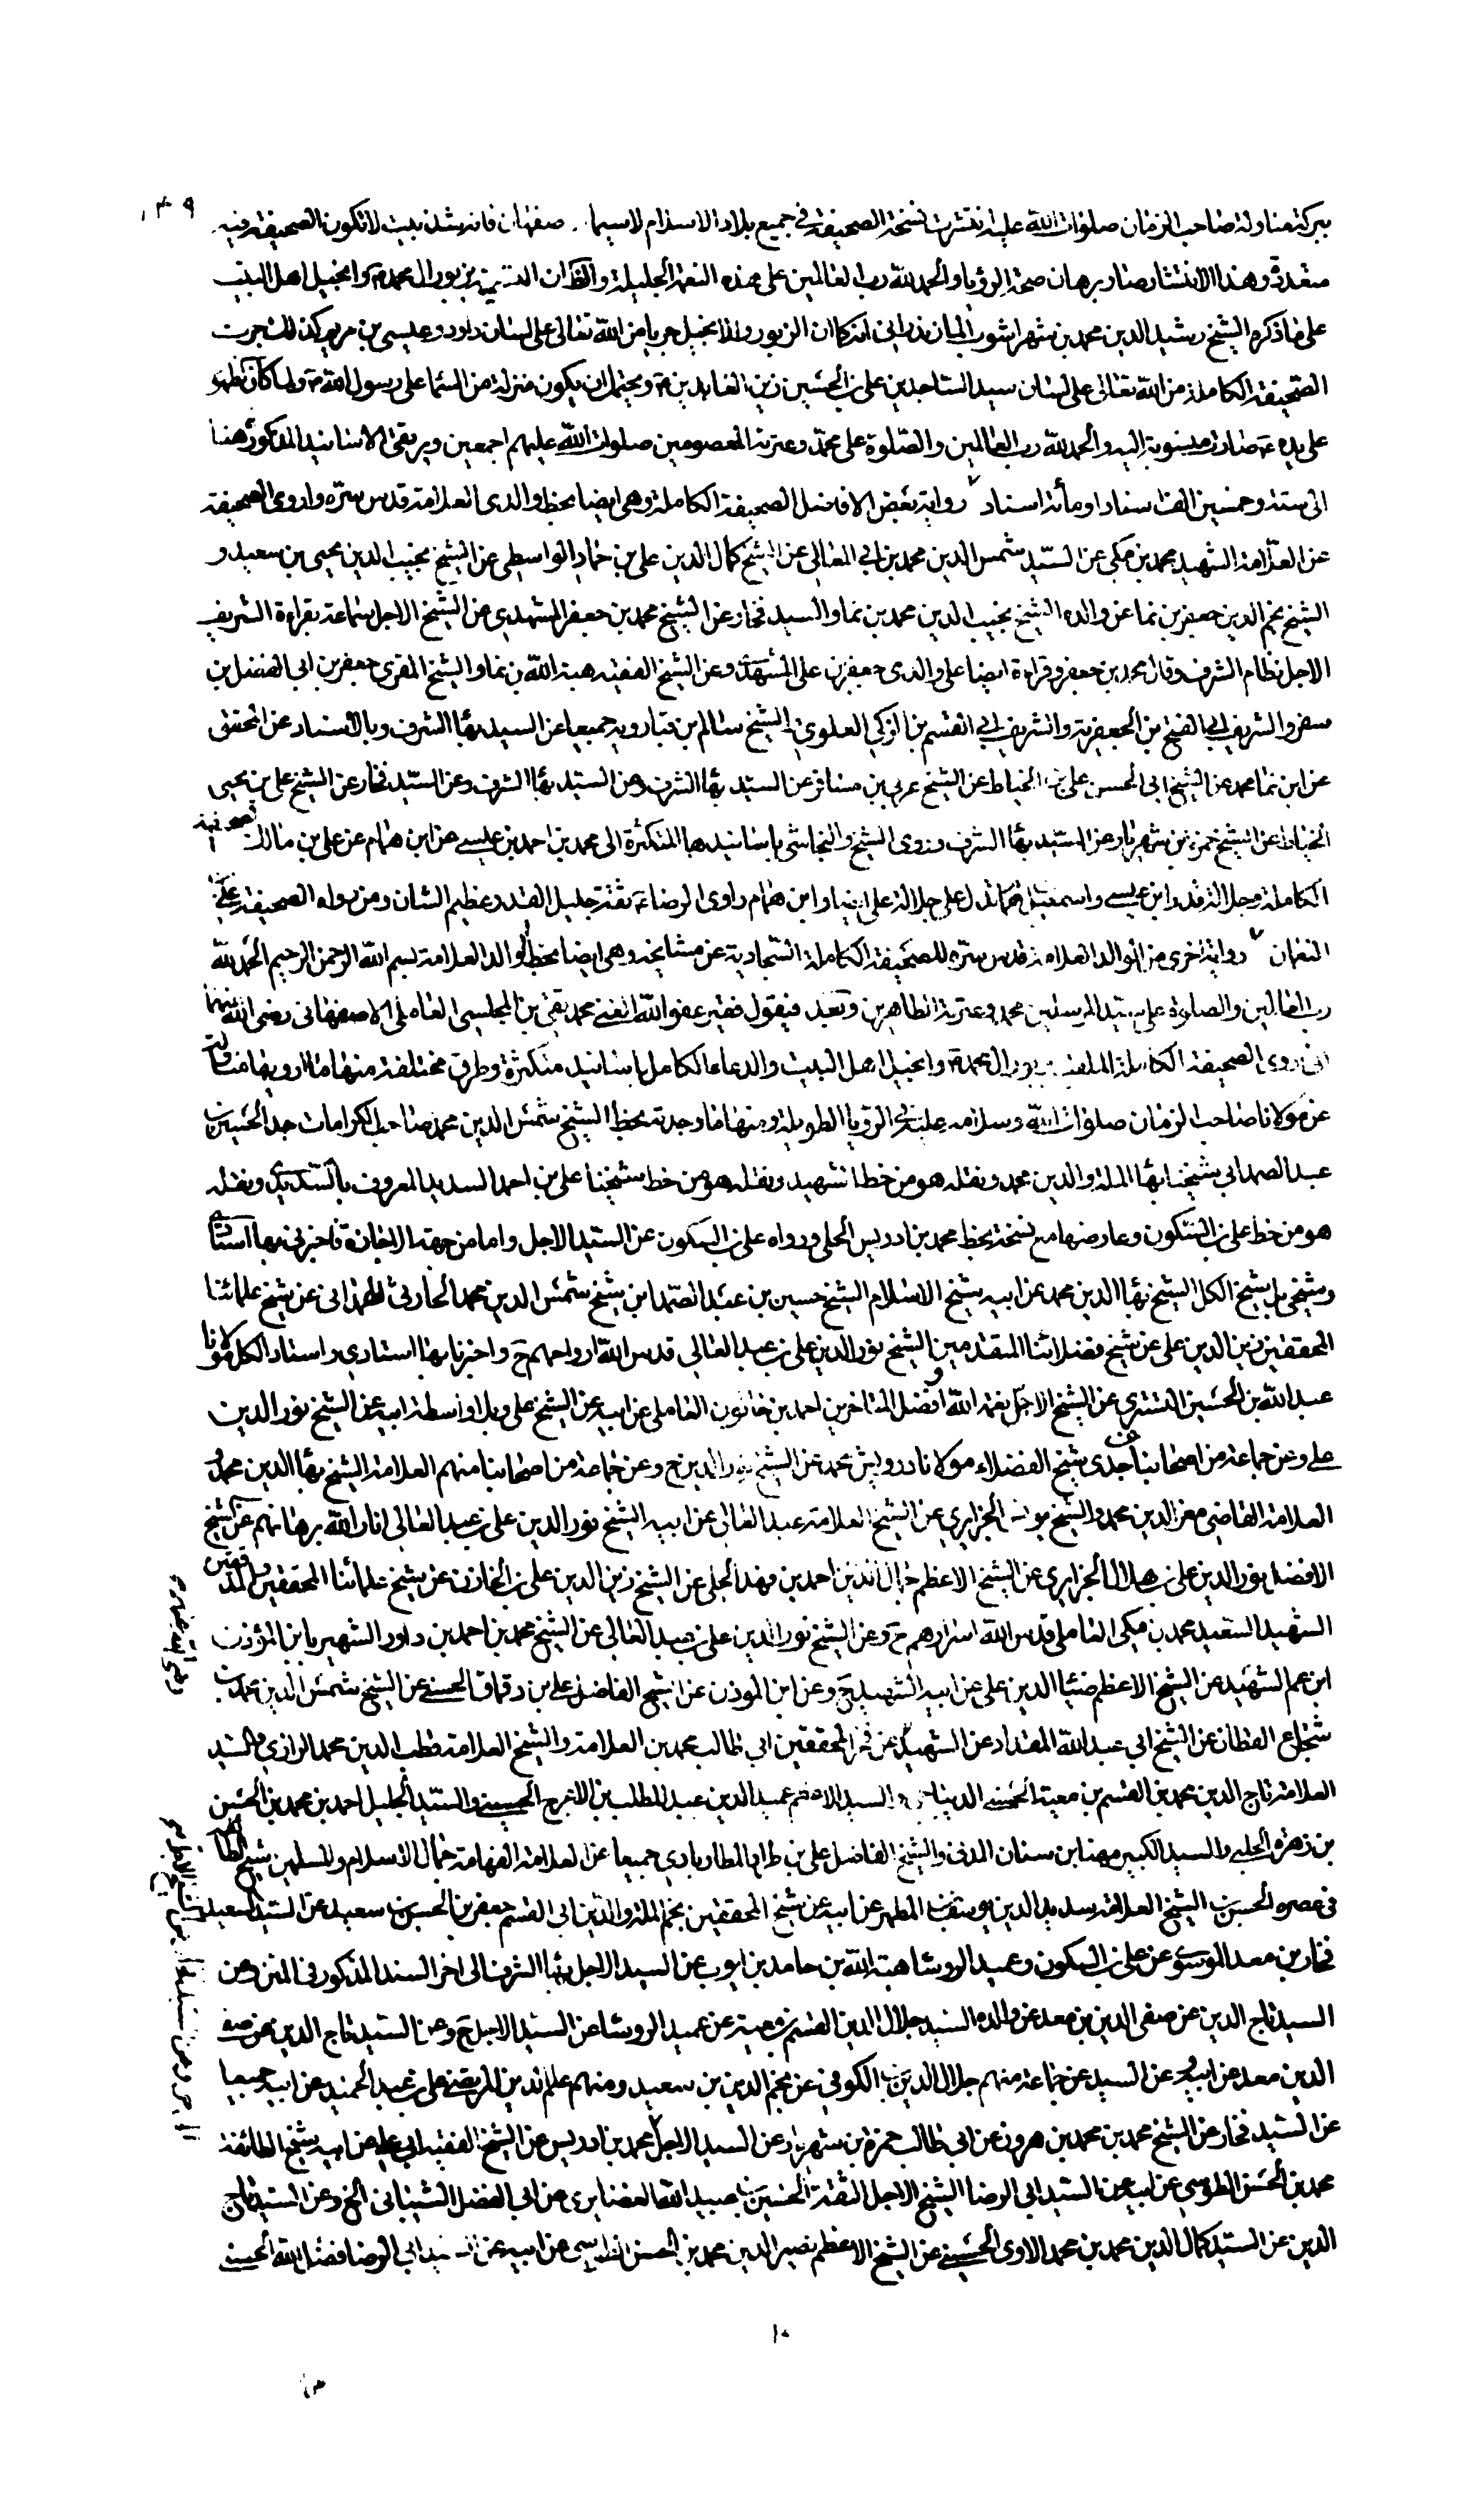 ١٣٩
ببركة مناولة صاحب الزمان صلوات الله عليه انتشرت نسخة الصحيفة في جميع بلاد الاسلام لاسيما صفهان فانه شذ بيت لا تكون الصحيفة فيه
متعددة وهذا الانتشار صار برهان صحة الرؤيا والحمد لله رب العالمين على هذه النعمة الجليلة والظ ان التسمية بزبور ال محمد ص وانجيل اهل البيت
على ما ذكره الشيخ رشيد الدين محمد بن شهراشوب المازندراني انه كما ان الزبور والانجيل جريا من الله تعالى على لسان داود وعيسى بن مريم كذلك جرت
الصحيفة الكاملة من الله تعالى على لسان سيد الساجدين علي بن الحسين زين العابدين ع ويحتمل ان يكون منزلة من السماء على رسول الله ص ولما كان ظهر
على يده ع صارت منسوبة اليه والحمد لله رب العالمين والصلوة على محمد وعترته المعصومين صلوات الله عليهم اجمعين ويرتقي الاسانيد المذكورة هنا
الى ستة وخمسين الف اسناد او مائة اسناد رواية بعض الافاضل الصحيفة الكاملة وهي ايضا بخط والدي العلامة قدس سره واروي الصحيفة
عن العلامة الشهيد محمد بن مكي عن السيد شمس الدين محمد بن ابي المعالي عن الشيخ كمال الدين علي بن حماد الواسطي عن الشيخ نجيب الدين يحيى بن سعيد و
الشيخ نجم الدين جعفر بن نما عن والده الشيخ نجيب الدين محمد بن نما والسيد فخار عن الشيخ محمد بن جعفر المشهدي عن الشيخ الاجل سماعة بقراءة الشريف
الاجل نظام الشرف وقال محمد بن جعفر وقراءة ايضا على والدي جعفر بن علي المشهدي وعن الشيخ الفقيه هبة الله بن نما والشيخ المقري جعفر بن ابي الفضل بن
سفر والشريف ابي الفتح بن الجعفرية والشريف ابي القسم بن الزكي العلوي والشيخ سالم بن قبارويه جميعا عن السيد بهاء الشرف وبالاسناد عن المحقق
عن ابن نما محمد عن الشيخ ابي الحسن علي بن الخياط عن الشيخ عربي بن مسافر عن السيد بهاء الشرف وعن السيد بهاء الشرف وعن السيد فخار عن الشيخ علي بن يحيى
الخياط عن الشيخ حمزة بن شهريار عن السيد بهاء الشرف وروى الشيخ والنجاشي باسانيدهما المتكثرة الى محمد بن احمد بن عيسى عن ابن همام عن علي بن مالك الصحيفة
الكاملة وجلالة قدر ابن عيسى واسمعيل مما تدل على جلالة علي ايضا وابن همام راوي الرضا ع ثقة جليل القدر عظيم الشان ومن رواه الصحيفة علي
النعمان رواية اخرى من الوالد العلامة قدس سره للصحيفة الكاملة السجادية عن مشايخه وهي ايضا بخط الوالد العلامة بسم الله الرحمن الرحيم الحمد لله
رب العالمين والصلوة على سيد المرسلين محمد وعترته الطاهرين وبعد فيقول فقير عفو الله الغني محمد تقي بن المجلسي العاملي الاصفهاني رضي الله عنهما
اني اروي الصحيفة الكاملة الملقبة بزبور ال محمد ص وانجيل اهل البيت والدعاء الكامل باسانيد متكثرة وطرق مختلفة منها ما ارويها مناولة
عن مولانا صاحب الزمان صلوات الله وسلامه عليه في الرؤيا الطويلة ومنها ما وجدته بخط الشيخ شمس الدين محمد صاحب الكرامات جد الحسين بن
عبد الصمد ابي شيخنا بهاء الملة والدين محمد ونقله هو من خط الشهيد ونقله هو من خط شيخنا علي بن احمد السديد المعروف بالسديدي ونقله
هو من خط علي بن السكون وعارضها مع نسخة بخط محمد بن ادريس الحلي ورواه علي بن السكون عن السيد الاجل واما من جهة الاجازة فاخبرني بها استادي
وشيخي بل شيخ الكل الشيخ بهاء الدين محمد عن ابيه شيخ الاسلام الشيخ حسين بن عبد الصمد ابن شيخ شمس الدين محمد الحارثي الهمداني عن شيخ علمائنا
المحققين زين الدين علي عن شيخ فضلائنا المتقدمين الشيخ نور الدين علي بن عبد العالي قدس الله ارواحهم ح واخبرنا بها استادي واستاد الكل مولانا
عبد الله بن الحسين التستري عن الشيخ الاجل نعمة الله وافضل المتاخرين احمد بن خاتون العاملي عن ابيه عن الشيخ علي وبلا واسطة ابيه عن الشيخ نور الدين
علي وعن جماعة من اصحابنا عن جدي شيخ الفضلاء مولانا درويش محمد عن الشيخ نور الدين ح وعن جماعة من اصحابنا منهم العلامة الشيخ بهاء الدين محمد و
العلامة القاضي معز الدين محمد والشيخ يونس الجزايري عن الشيخ العلامة عبد العالي عن ابيه الشيخ نور الدين علي بن عبد العالي انار الله برهانهم عن الشيخ
الافضل نور الدين علي بن هلال الجزايري عن الشيخ الاعظم جمال الدين احمد بن فهد الحلي عن الشيخ زين الدين علي بن الخازن عن شيخ علمائنا المحققين والمدققين
الشهيد السعيد محمد بن مكي العاملي قدس الله اسرارهم ح وعن الشيخ نور الدين علي بن عبد العالي عن الشيخ محمد بن احمد بن داود الشهير بابن المؤذن
ابن عم الشهيد عن الشيخ الاعظم ضياء الدين علي عن ابيه الشهيد ح وعن ابن الموذن عن الشيخ الفاضل علي بن دقماق الحسني عن الشيخ شمس الدين محمد بن
شجاع القطان عن الشيخ ابي عبد الله المقداد عن الشهيد عن فخر المحققين ابي طالب محمد بن العلامة والشيخ العلامة قطب الدين محمد الرازي والسيد
العلامة تاج الدين محمد بن القسم بن معية الحسني الديباجي والسيد الاعظم عميد الدين عبد المطلب بن الاعرج الحسيني والسيد الجليل احمد بن محمد بن الحسن
بن زهرة الحلبي والسيد الكبير مهنا ابن سنان المدني والشيخ الفاضل علي بن طراد المطاربادي جميعا عن العلامة الفهامة جمال الاسلام والمسلمين شيخ الطائفة
في عصره الحسن بن الشيخ العلامة سديد الدين يوسف بن المطهر عن ابيه عن شيخ المحققين نجم الملة والدين ابي القسم جعفر بن الحسن بن سعيد عن السيد السعيد
فخار بن معد الموسوي عن علي بن السكون وعميد الروساء هبة الله بن حامد بن ايوب عن السيد الاجل بهاء الشرف الى اخر السند المذكور في المتن وعن
السيد تاج الدين عن صفي الدين بن معد عن والده السيد جلال الدين القسم بن معية عن عميد الروساء عن السيد الاجل ح وعن السيد تاج الدين عن صفي
الدين معد عن ابيه وعن السيد عن جماعة منهم جلال الدين بن الكوفي عن نجم الدين بن سعيد ومنهم علم الدين المرتضى علي بن عبد الحميد عن ابيه جميعا
عن السيد فخار عن الشيخ محمد بن محمد بن هرون عن ابي طالب حمزة بن شهريار عن السيد الاجل محمد بن ادريس عن الشيخ الفقيه ابي علي عن ابيه شيخ الطائفة
محمد بن الحسن الطوسي عن ابيه عن السيد ابي الرضا الشيخ الاجل الثقة الحسين بن عبيد الله الغضايري عن ابي الفضل الشيباني الخ وعن السيد تاج
الدين عن السيد كمال الدين محمد بن محمد الاوي الحسيني عن الشيخ الاعظم نصير الدين محمد بن الحسن الطوسي عن ابيه عن السيد ابي الرضا فضل الله الحسني
١٠